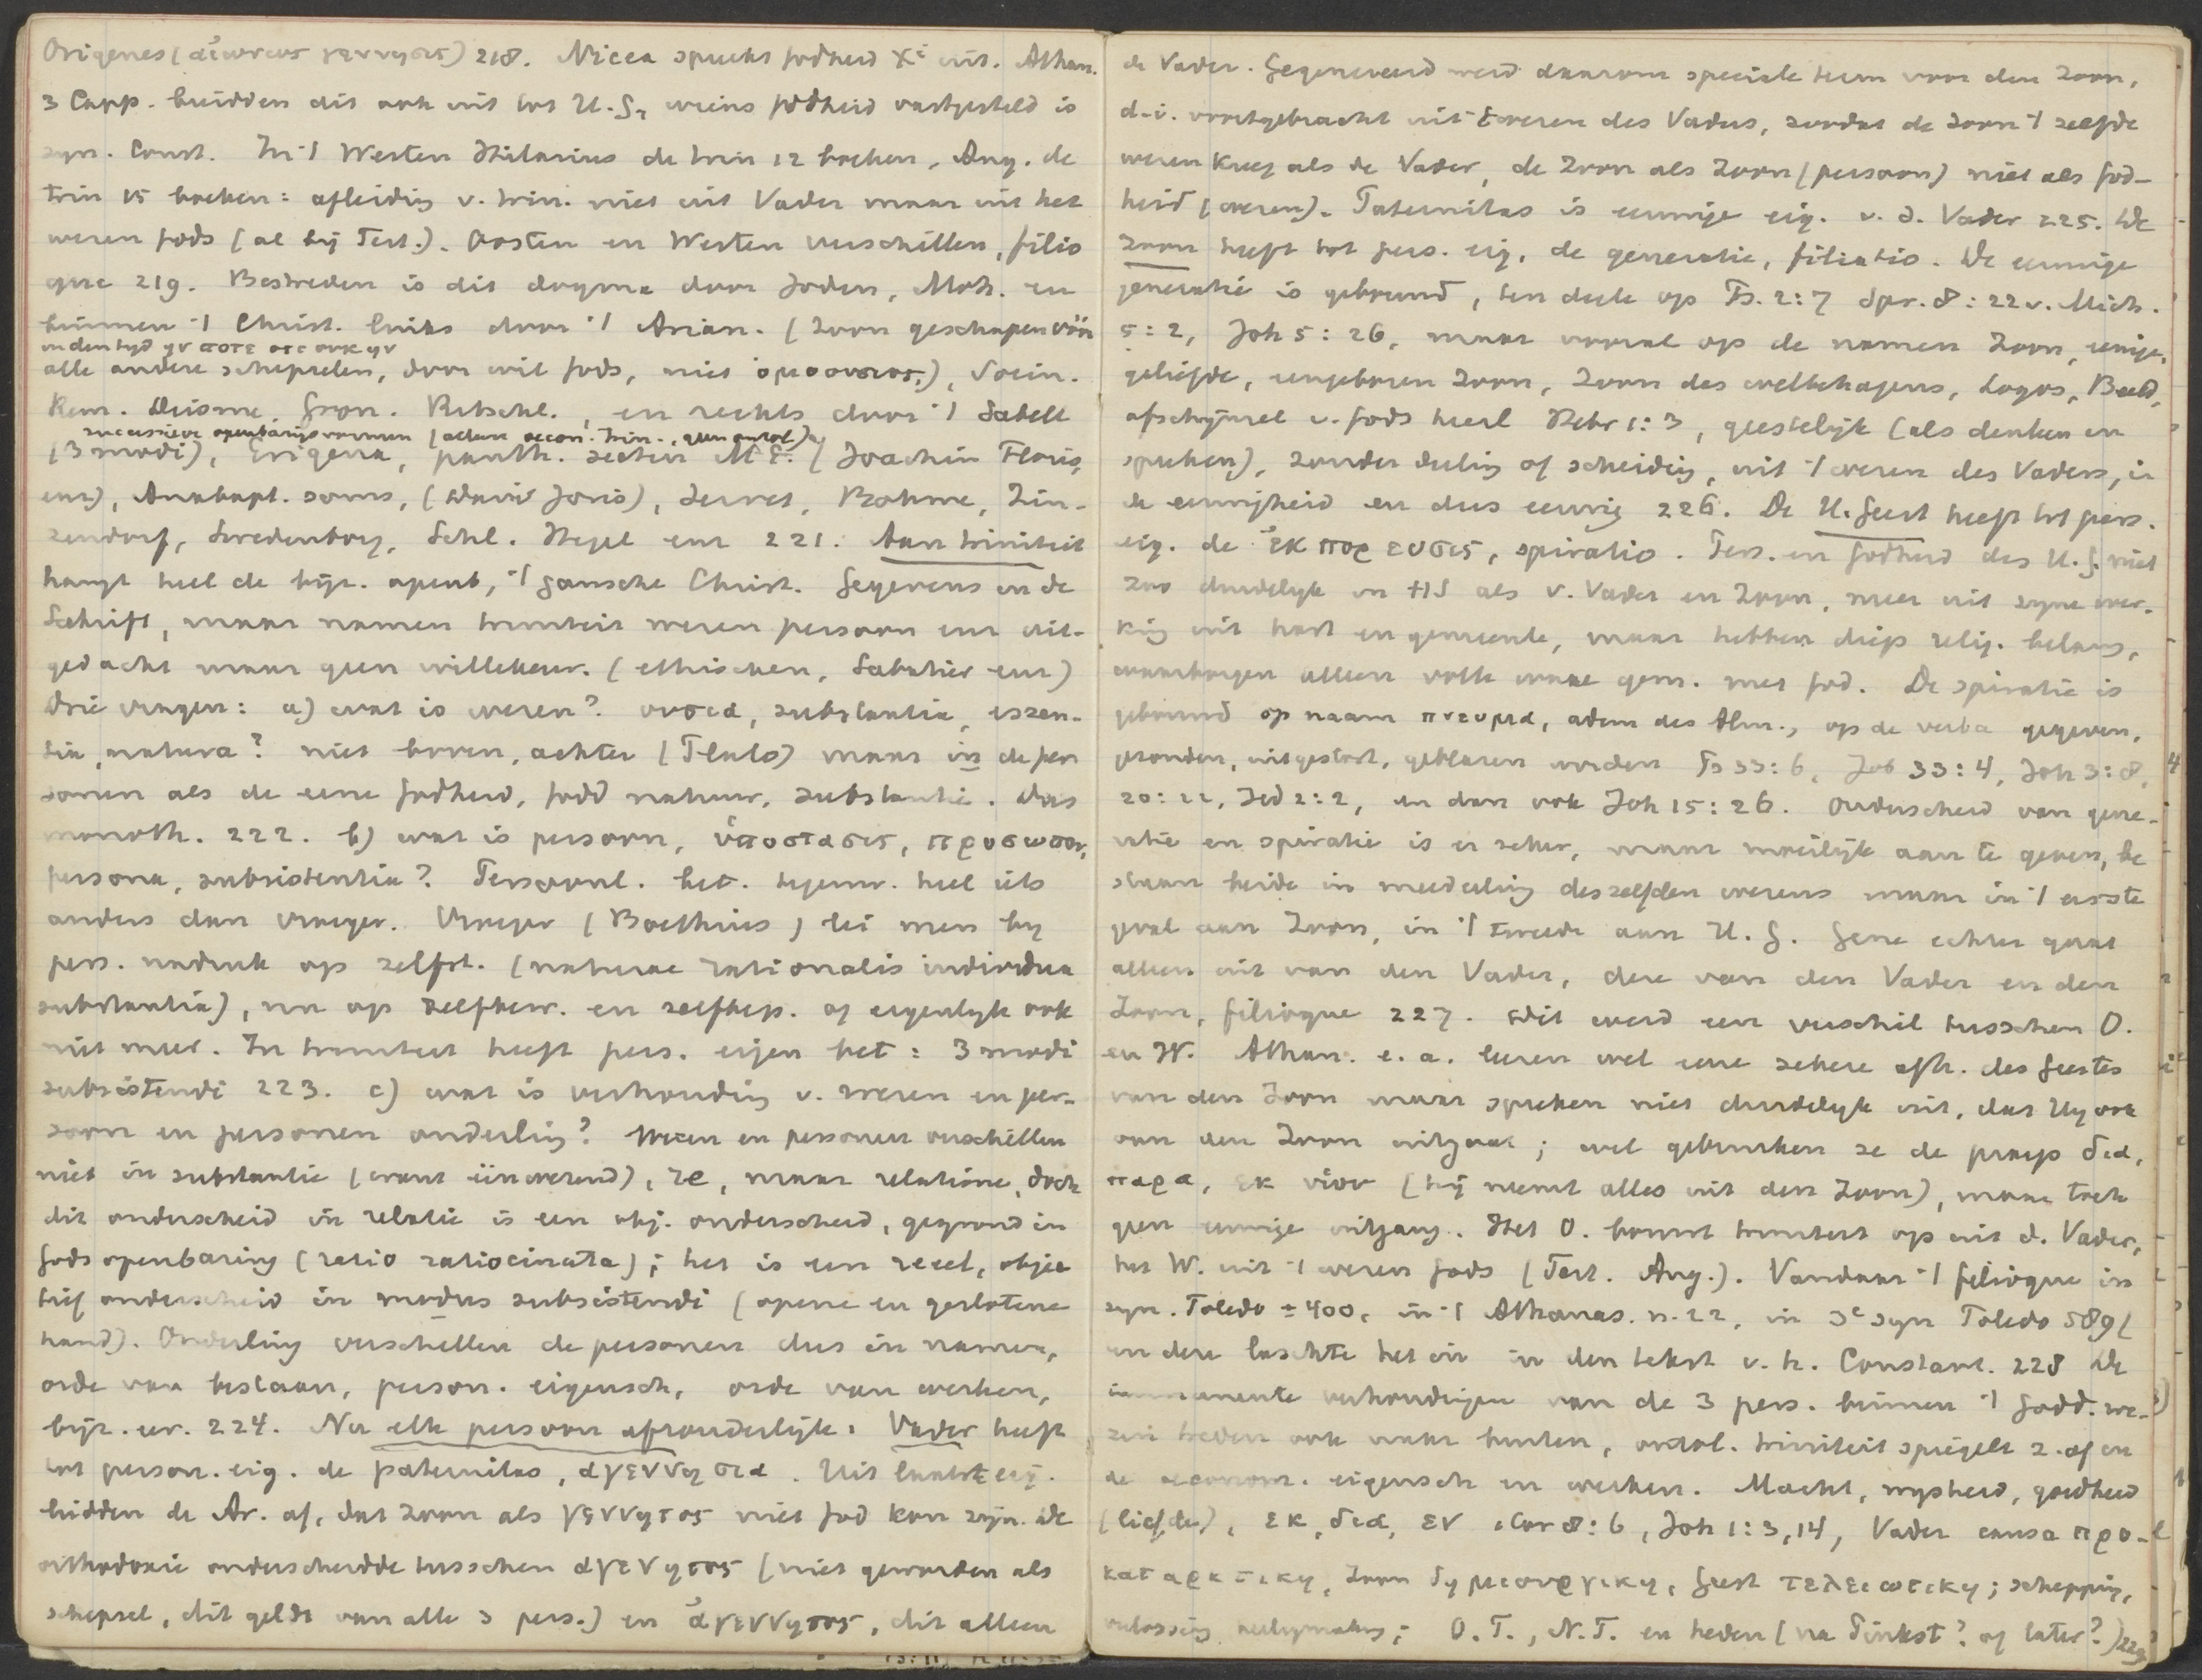 Origenes (αἰωνιως γεννησις) 218. Nicea spreekt godheid Xi uit. Athan.
3 Capp. breidden dit ook uit tot H. G., wiens godheid vastgesteld is
syn. Const. In 't Westen Hilarius de trin 12 boeken, Aug. de
trin 15 boeken: afleiding v. trin. niet uit Vader maar uit het
wezen Gods (al bij Tert.). Oosten en Westen verschillen, filio
que 219. Bestreden is dit dogma door Joden, Moh. en
binnen 't Christ. links door 't Arian. (Zoon geschapen vóór
in den tijd ην ποτε οτε ουκ ην
alle andere schepselen, door wil Gods, niet ὁμοουσιος), Socin.
Rem. Deisme, Gron. Ritschl., en rechts door 't Sabell
successieve openbaringsvormen (alleen oecon. trin., geen ontol)
(3 modi), Erigena, panth. secten M E. (Joachim Floris,
enz), Anabapt. soms, (David Joris), Servet, Bohme, Zin-
zendorf, Swedenborg, Schl. Hegel enz 221. Aan triniteit
hangt heel de bijz. openb, 't gansche Christ. Gegevens in de
Schrift, maar namen triniteit wezen persoon enz uit-
gedacht maar geen willekeur. (ethischen, Sabatier enz)
Drie vragen: a) wat is wezen? ουσια, substantia, essen-
tia, natura? niet boven, achter (Plato) maar in de per
sonen als de eene godheid, godd natuur, substantie. Dus
monoth. 222. b) wat is persoon, ὑποστασις, προσωπον,
persona, subsistentia? Persoonl. bet. tegenw. heel iets
anders dan vroeger. Vroeger (Boethius) lei men bij
pers. nadruk op zelfst. (naturae rationalis individua
substantia), nu op zelfbew. en zelfbep. of eigenlijk ook
niet meer. In triniteit heeft pers. eigen bet: 3 modi
subsistendi 223. c) wat is verhouding v. wezen en per-
soon en personen onderling? Wezen en personen verschillen
niet in substantie (want éénwezend), re, maar relatione, doch
dit onderscheid in relatie is een obj. onderscheid, gegrond in
Gods openbaring (ratio ratiocinata); het is een reeel, objec
tief onderscheid in modus subsistendi (opene en geslotene
hand). Onderling verschillen de personen dus in namen,
orde van bestaan, person. eigensch, orde van werken,
bijz. w. 224. Nu elk persoon afzonderlijk: Vader heeft
tot person. eig. de paternitas, αγεννησια. Uit laatste eig.
leidden de Ar. af, dat Zoon als γεννητος niet God kon zijn. De
orthodoxie onderscheidde tusschen αγενητος (niet geworden als
schepsel, dit geldt van alle 3 pers.) en ἀγεννητος, dit alleen
de Vader. Gegenereerd werd daarom speciale term voor den Zoon,
d.i. voortgebracht uit 't wezen des Vaders, zoodat de Zoon 't zelfde
wezen kreeg als de Vader, de Zoon als Zoon (persoon) niet als god-
heid (wezen). Paternitas is eeuwige eig. v. d. Vader 225. De
Zoon heeft tot pers. eig. de generatie, filiatio. De eeuwige
generatie is gebouwd, ten deele op Ps. 2:7 Spr. 8:22 v. Mich.
5:2, Joh 5:26, maar vooral op de namen Zoon, eenige,
geliefde, eengeboren Zoon, Zoon des welbehagens, Logos, Beeld,
afschijnsel v. Gods heerl Hebr 1:3, geestelijk (als denken en
spreken), zonder deeling of scheiding, uit 't wezen des Vaders, in
de eeuwigheid en dus eeuwig 226. De H. Geest heeft tot pers.
eig. de ἐκπορευσις, spiratio. Pers. en godheid des H. G. niet
zoo duidelijk in HS als v. Vader en Zoon, meer uit zijne wer-
king uit hart en gemeente, maar hebben diep relig. belang,
waarborgen alleen volle ware gem. met God. De spiratie is
gebouwd op naam πνευμα, adem des Alm., op de verba gegeven,
gezonden, uitgestort, geblazen worden Ps 33:6, Job 33:4, Joh 3:8,
20:22, Hd 2:2, en dan ook Joh 15:26. Onderscheid van gene-
ratie en spiratie is er zeker, maar moeilijk aan te geven, be
staan beide in mededeeling deszelfden wezens maar in 't eerste
geval aan Zoon, in 't tweede aan H. G. Gene echter gaat
alleen uit van den Vader, deze van den Vader en den
Zoon, filioque 227. Dit werd een verschil tusschen O.
en W. Athan. e. a. leeren wel eene zekere afh. des Geestes
van den Zoon maar spreken niet duidelijk uit, dat Hij ook
van den Zoon uitgaat; wel gebruiken ze de praep δια,
παρα, εκ υἱου (hij neemt alles uit den Zoon), maar toch
geen eeuwige uitgang. Het O. bouwt triniteit op uit d. Vader,
het W. uit 't wezen Gods (Tert. Aug.). Vandaar 't filioque in
syn. Toledo ± 400, in 't Athanas. n. 22, in 3e syn Toledo 589 (
en deze laschte het in in den tekst v. h. Constant. 228 De
immanente verhoudingen van de 3 pers. binnen 't godd. we-
zen treden ook naar buiten, ontol. triniteit spiegelt z. af in
de oeconom. eigensch en werken. Macht, wijsheid, goedheid
(liefde), εκ, δια, εν 1 Cor 8:6, Joh 1:3,14, Vader causa προ-
καταρκτικη, Zoon δημιουργικη, Geest τελειωτικη; schepping,
verlossing heiligmaking; O.T., N.T. en heden (na Pinkst? of later?) 229